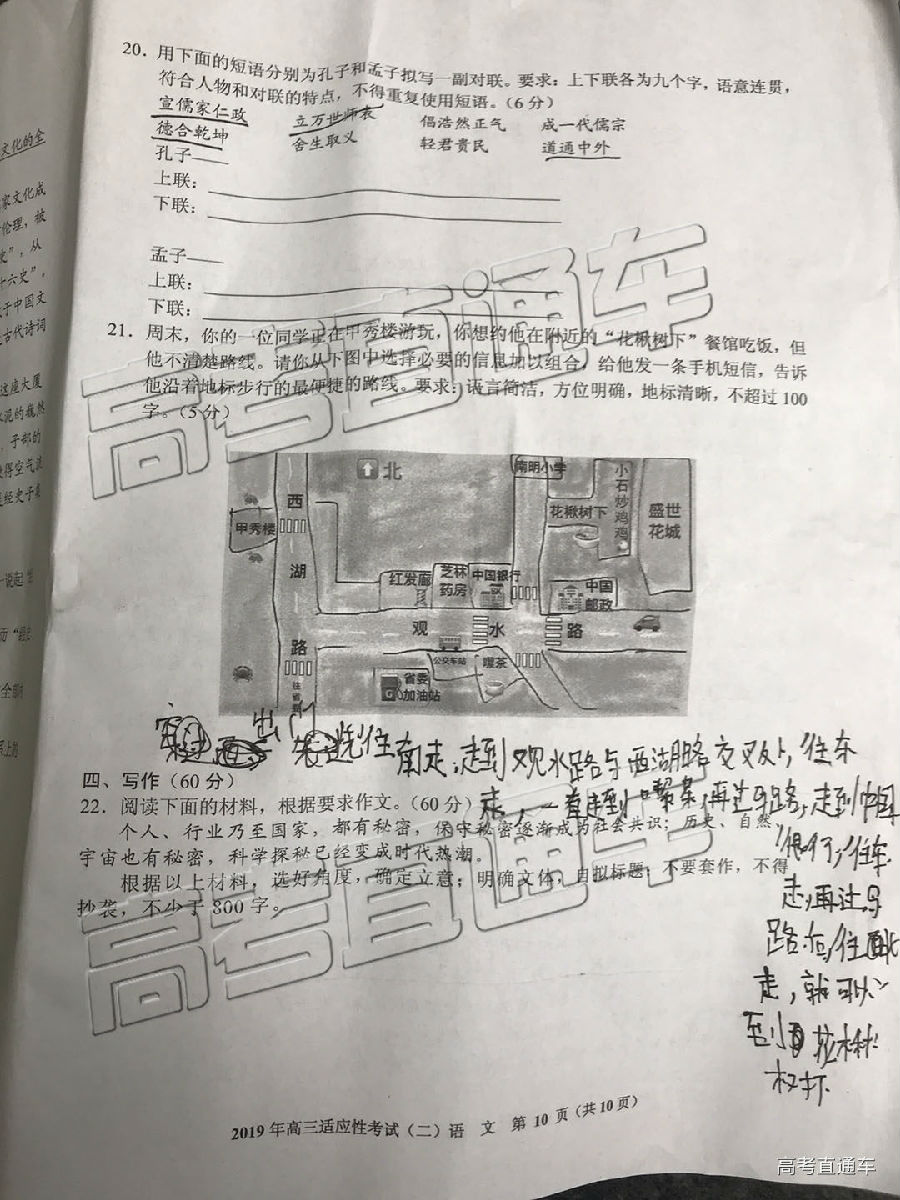 20. 用下面的短语分别为孔子和孟子拟写一副对联。要求：上下联各为九个字，语意连贯，
符合人物和对联的特点，不得重复使用短语。（6分）
宣儒家仁政 立万世师表 倡浩然正气 成一代儒宗
德合乾坤 舍生取义 轻君贵民 道通中外
孔子——
上联：
下联：
孟子——
上联：
下联：
21. 周末，你的一位同学正在甲秀楼游玩，你想约他在附近的“花椒树下”餐馆吃饭，但
他不清楚路线。请你从下图中选择必要的信息加以组合，给他发一条手机短信，告诉
他沿着地标步行的最便捷的路线。要求：语言简洁，方位明确，地标清晰，不超过100
字。（5分）
北
南明小学
小石炒鸡鸡
盛世花城
花椒树下
甲秀楼
西湖路
红发廊
芝林药房
中国银行
中国邮政
观水路
公交车站
喫茶
省委加油站
出门
先 往南走，走到观水路与西湖路交叉口，往东
走，一直走到喫茶，再过马路，走到中国
银行，往东
走，再过马
路后，往北
走，就可以
到 花椒
树下
四、写作（60分）
22. 阅读下面的材料，根据要求作文。（60分）
个人、行业乃至国家，都有秘密，保守秘密逐渐成为社会共识；历史、自然、
宇宙也有秘密，科学探秘已经变成时代热潮。
根据以上材料，选好角度，确定立意；明确文体，自拟标题；不要套作，不得
抄袭，不少于800字。
2019年高三适应性考试（二）语 文 第10页（共10页）
文化的全
家文化成
伦理，被
史”，从
十六史”，
于中国文
古代诗词
这座大厦
子部的
得空气流
高考直通车
高考直通车
高考直通车